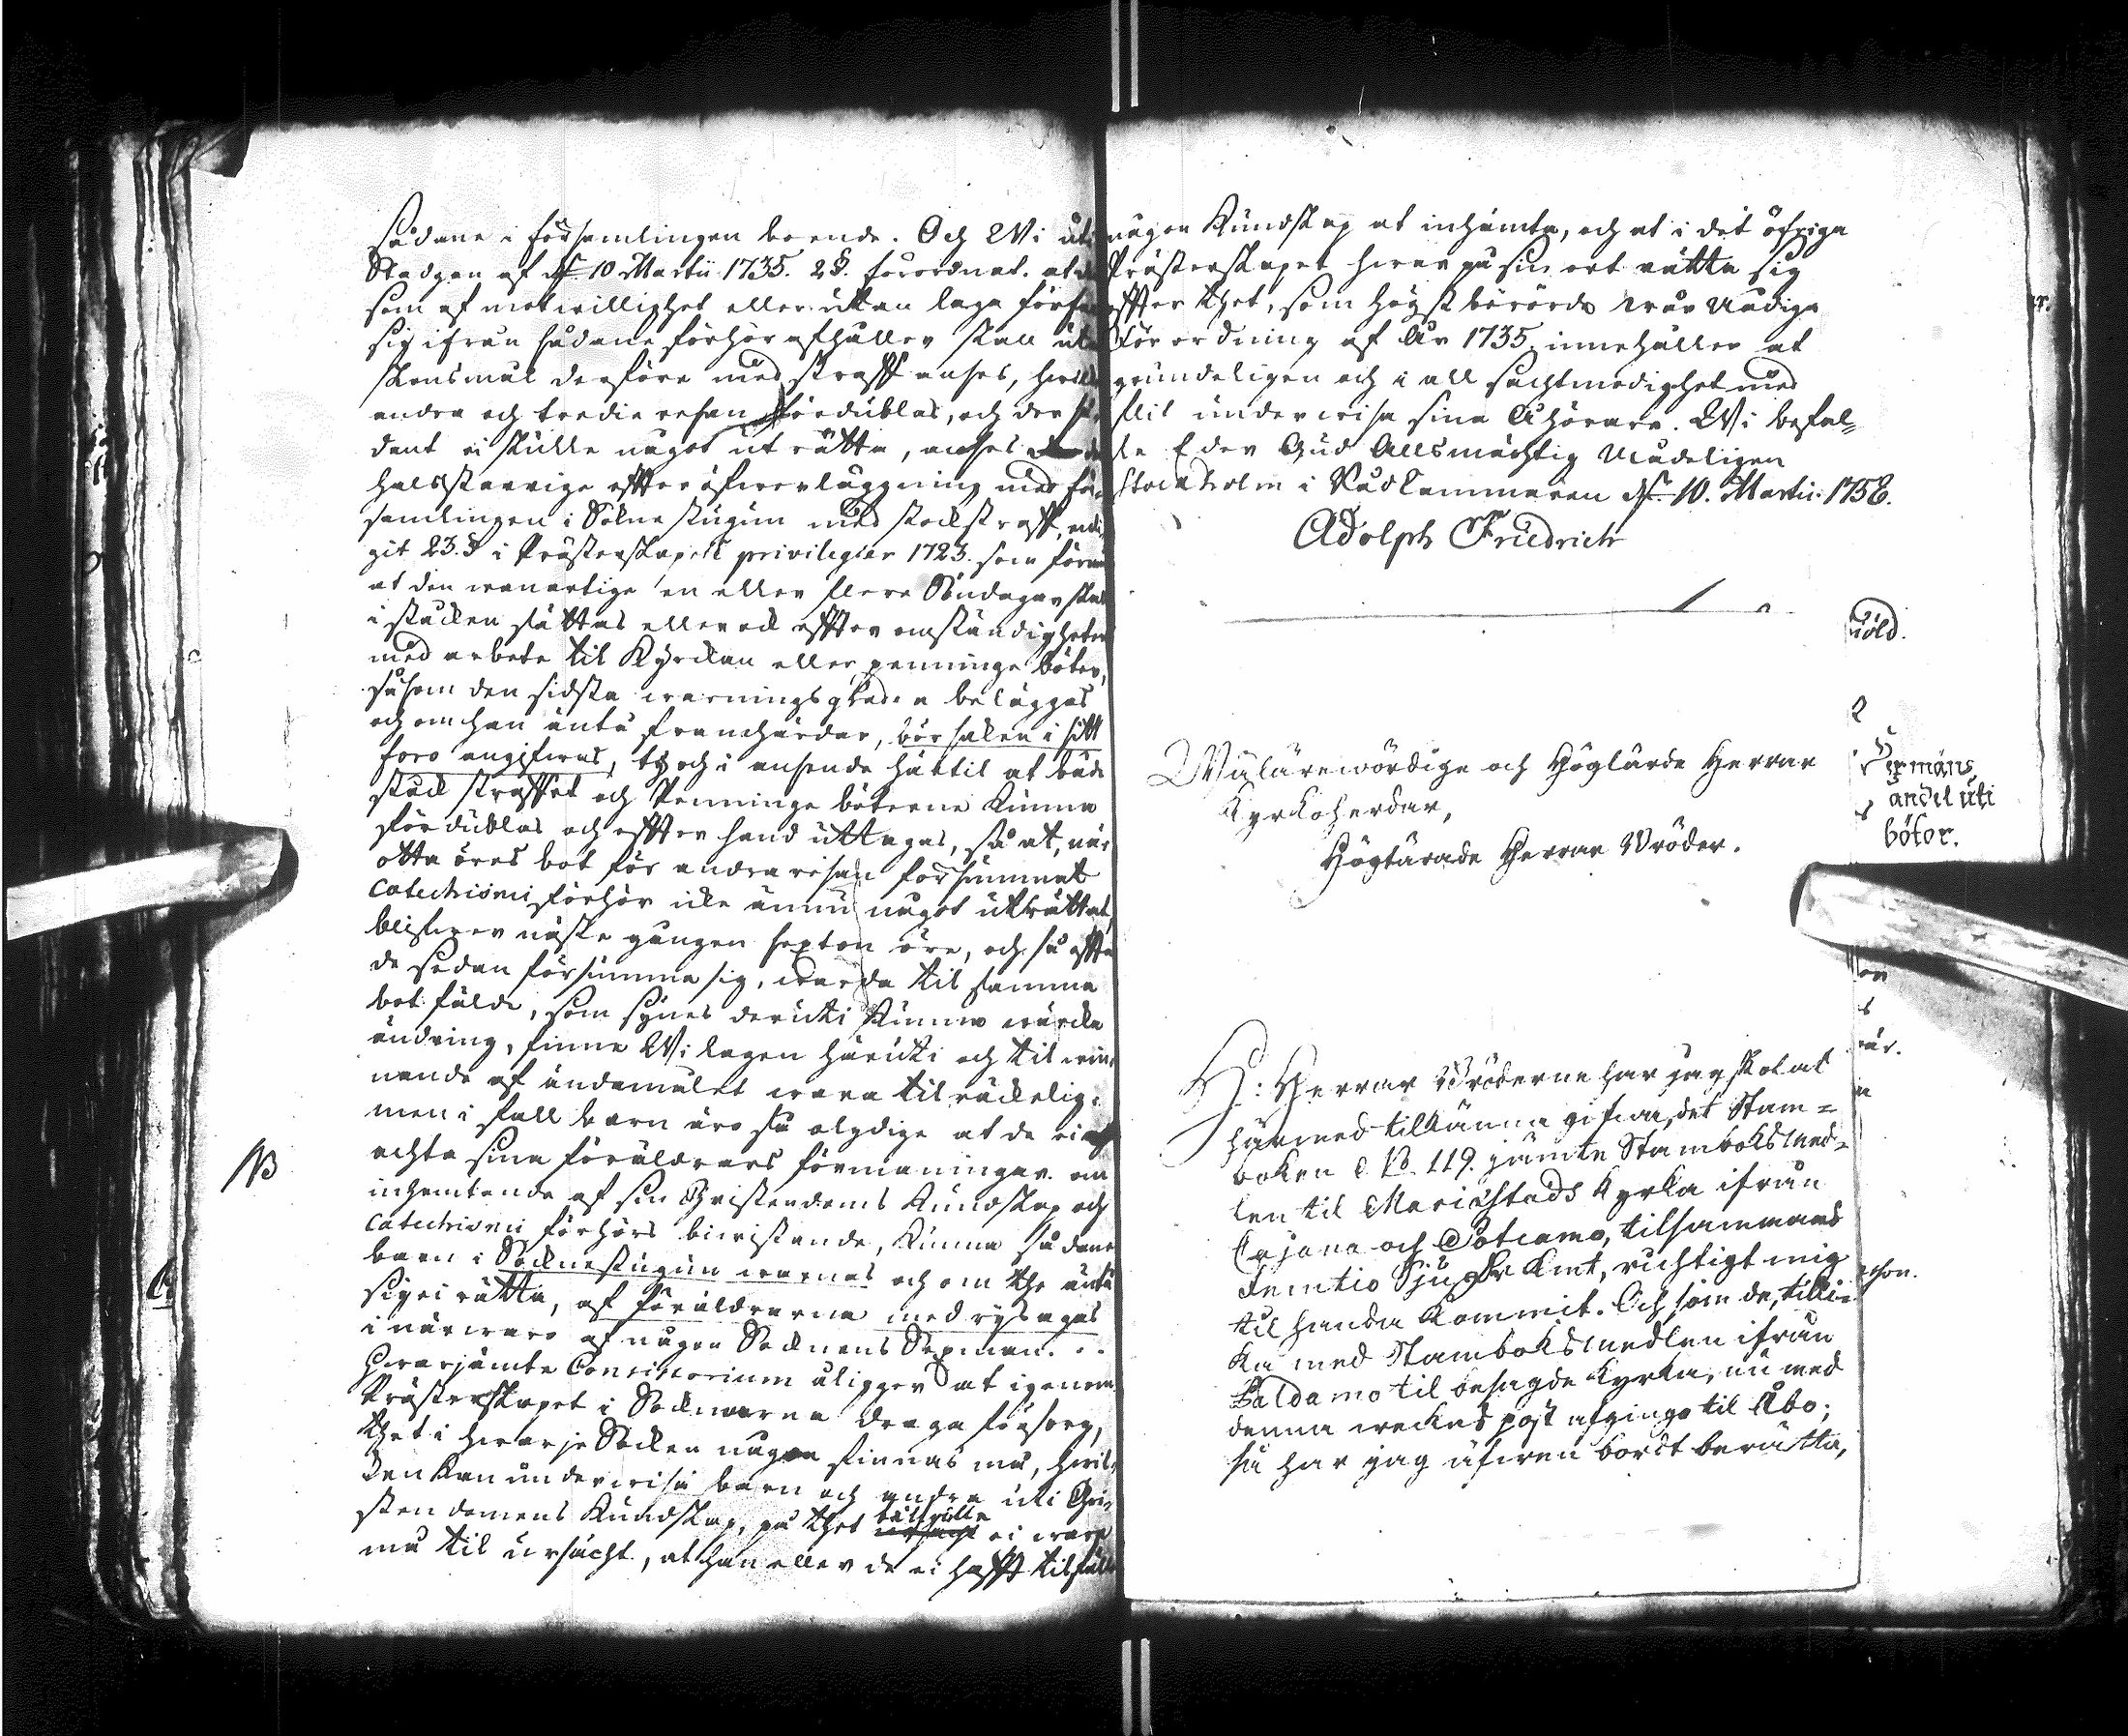 sådane i församlingen boende. Och Wi uti
Stadgan af d. 10 Martii 1735. 2 §. förordnat, at de
som af motwillighet eller utan laga förfall
sig ifrån sådane förhör afhåller skall uti
skensmål derföre med straff anses, hwilke
andra och tredie resan fördublas, och der så-
dant ei skulle något ut rätta, anses de
halsstarrige efter öfwerläggning med för-
samlingen i Soknestugun med stockstraff, enli-
git 23. § i Prästerskapets privilegier 1723. som förmår
at den wanartige en eller flere Söndagar skal
i stocken sättas eller ock efter omständigheter
med arbete til Kyrckan eller penninge böter,
såsom den sidsta warningsgraden beläggas
och om han ändå framhärdar, bör saken i sitt
foro angifwas, ty och i anseende härtil at både
stock straffet och Penninge böterne kunna
fördublas och efter hand uttagas, så at, när
otta öres bot för andra resan försummat
Catechismi förhör icke ännu något uträttat,
blifwer nästa gången sexton öre, och så offta
de sedan försumma sig, warda til samma
bot fälde, som synes deruti kunna wärcka
ändring, finne Wi lagen häruti och til win-
nande af ändamålet wara tilräckelig:
men i fall barn äro så olydige at de ei
achta sina föräldrars förmaningar om
inhemtande af sin Christendoms Kundskap och
Catechismi förhörs biwistande, kunna sådane
barn i Socknestugun warnas och om the ändå
sig ei rätta, af föräldrarna med rys agas
i närwaro af någon Socknens Sexman. ..
Hwarjämte Consistorium åligger at igenom
Prästerskapet i Socknarne draga försorg,
thet i hwarje Socken någon finnas må, hwil-
den kan underwisa barn och andra uti Chri-
stendomens Kundskap, på thet tilfälle ei wara
må til ursächt, at han eller de ei hafft tilfälle
NB
någon Kundskap at inhämta, och at i det öfriga
Prästerskapet hwar på sin ort rätta sig
efter thet, som högst berörde wår Nådiga
Förordning af År 1735. innehåller at
grundeligen och i all sachtmodighet med
flit underwisa sina Åhörare. Wi befal-
le Eder Gud Allsmächtig Nådeligen
Stockholm i Rådkammaren d. 10. Martii 1756.
Adolph Friedrich
Wälärewördige och Höglärde Herrar
Kyrkoherdar,
Högtärade Herrar Bröder.
H: Herrar Bröderne har jag skolat
härmed tilkänna gifwa, det Stam-
boken No. 119. jämte Stamboksmed-
len til Mariæstads Kyrka ifrån
Cajana och Sotcamo, tilsammans
femtio Sju dr Kmt, richtigt mig
til handa kommit. Och som de, tilli-
ka med Stamboksmedlen ifrån
Paldamo til besagde Kyrka, nu med
denna weckas post afginge til Åbo;
så har jag äfwen bordt berätta,
ermäns
andel uti
böter.